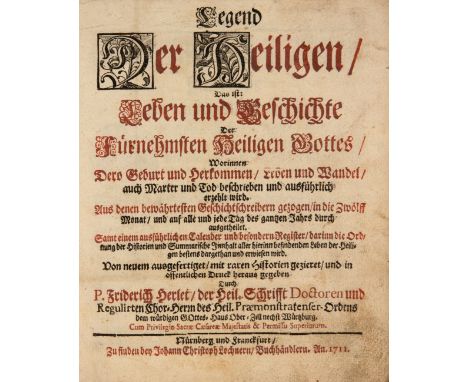 Legend
Der Heiligen/
Das ist:
Leben und Geschichte
Der
Fürnehmsten Heiligen Gottes/
Worinnen
Dero Geburt und Herkommen/ Leben und Wandel/
auch Marter und Tod beschrieben und ausführlich
erzehlt wird.
Aus denen bewährtesten Geschichtschreibern gezogen/ in die Zwölff
Monat/ und auf alle und jede Tag des gantzen Jahrs durch
ausgetheilet.
Samt einem ausführlichen Calender und besondern Register/ darinn die Ord-
nung der Historien und Summarische Innhalt aller hierinn befindenden Leben der Heili-
gen bestens dargethan und erwiesen wird.
Von neuem ausgefertiget/ mit raren Historien gezieret/ und in
öffentlichen Druck heraus gegeben
Durch
P. Friderich Herlet/ der Heil. Schrifft Doctoren und
Regulirten Chor-Herrn des Heil. Præmonstratenser-Ordens
dem würdigen GOttes-Haus Ober-Zell nechst Würtzburg.
Cum Privilegio Sacræ Cæsareæ Majestatis & Permissu Superiorum.
Nürnberg und Franckfurt/
Zu finden bey Johann Christoph Lochnern/ Buchhändlern. An. 1711.